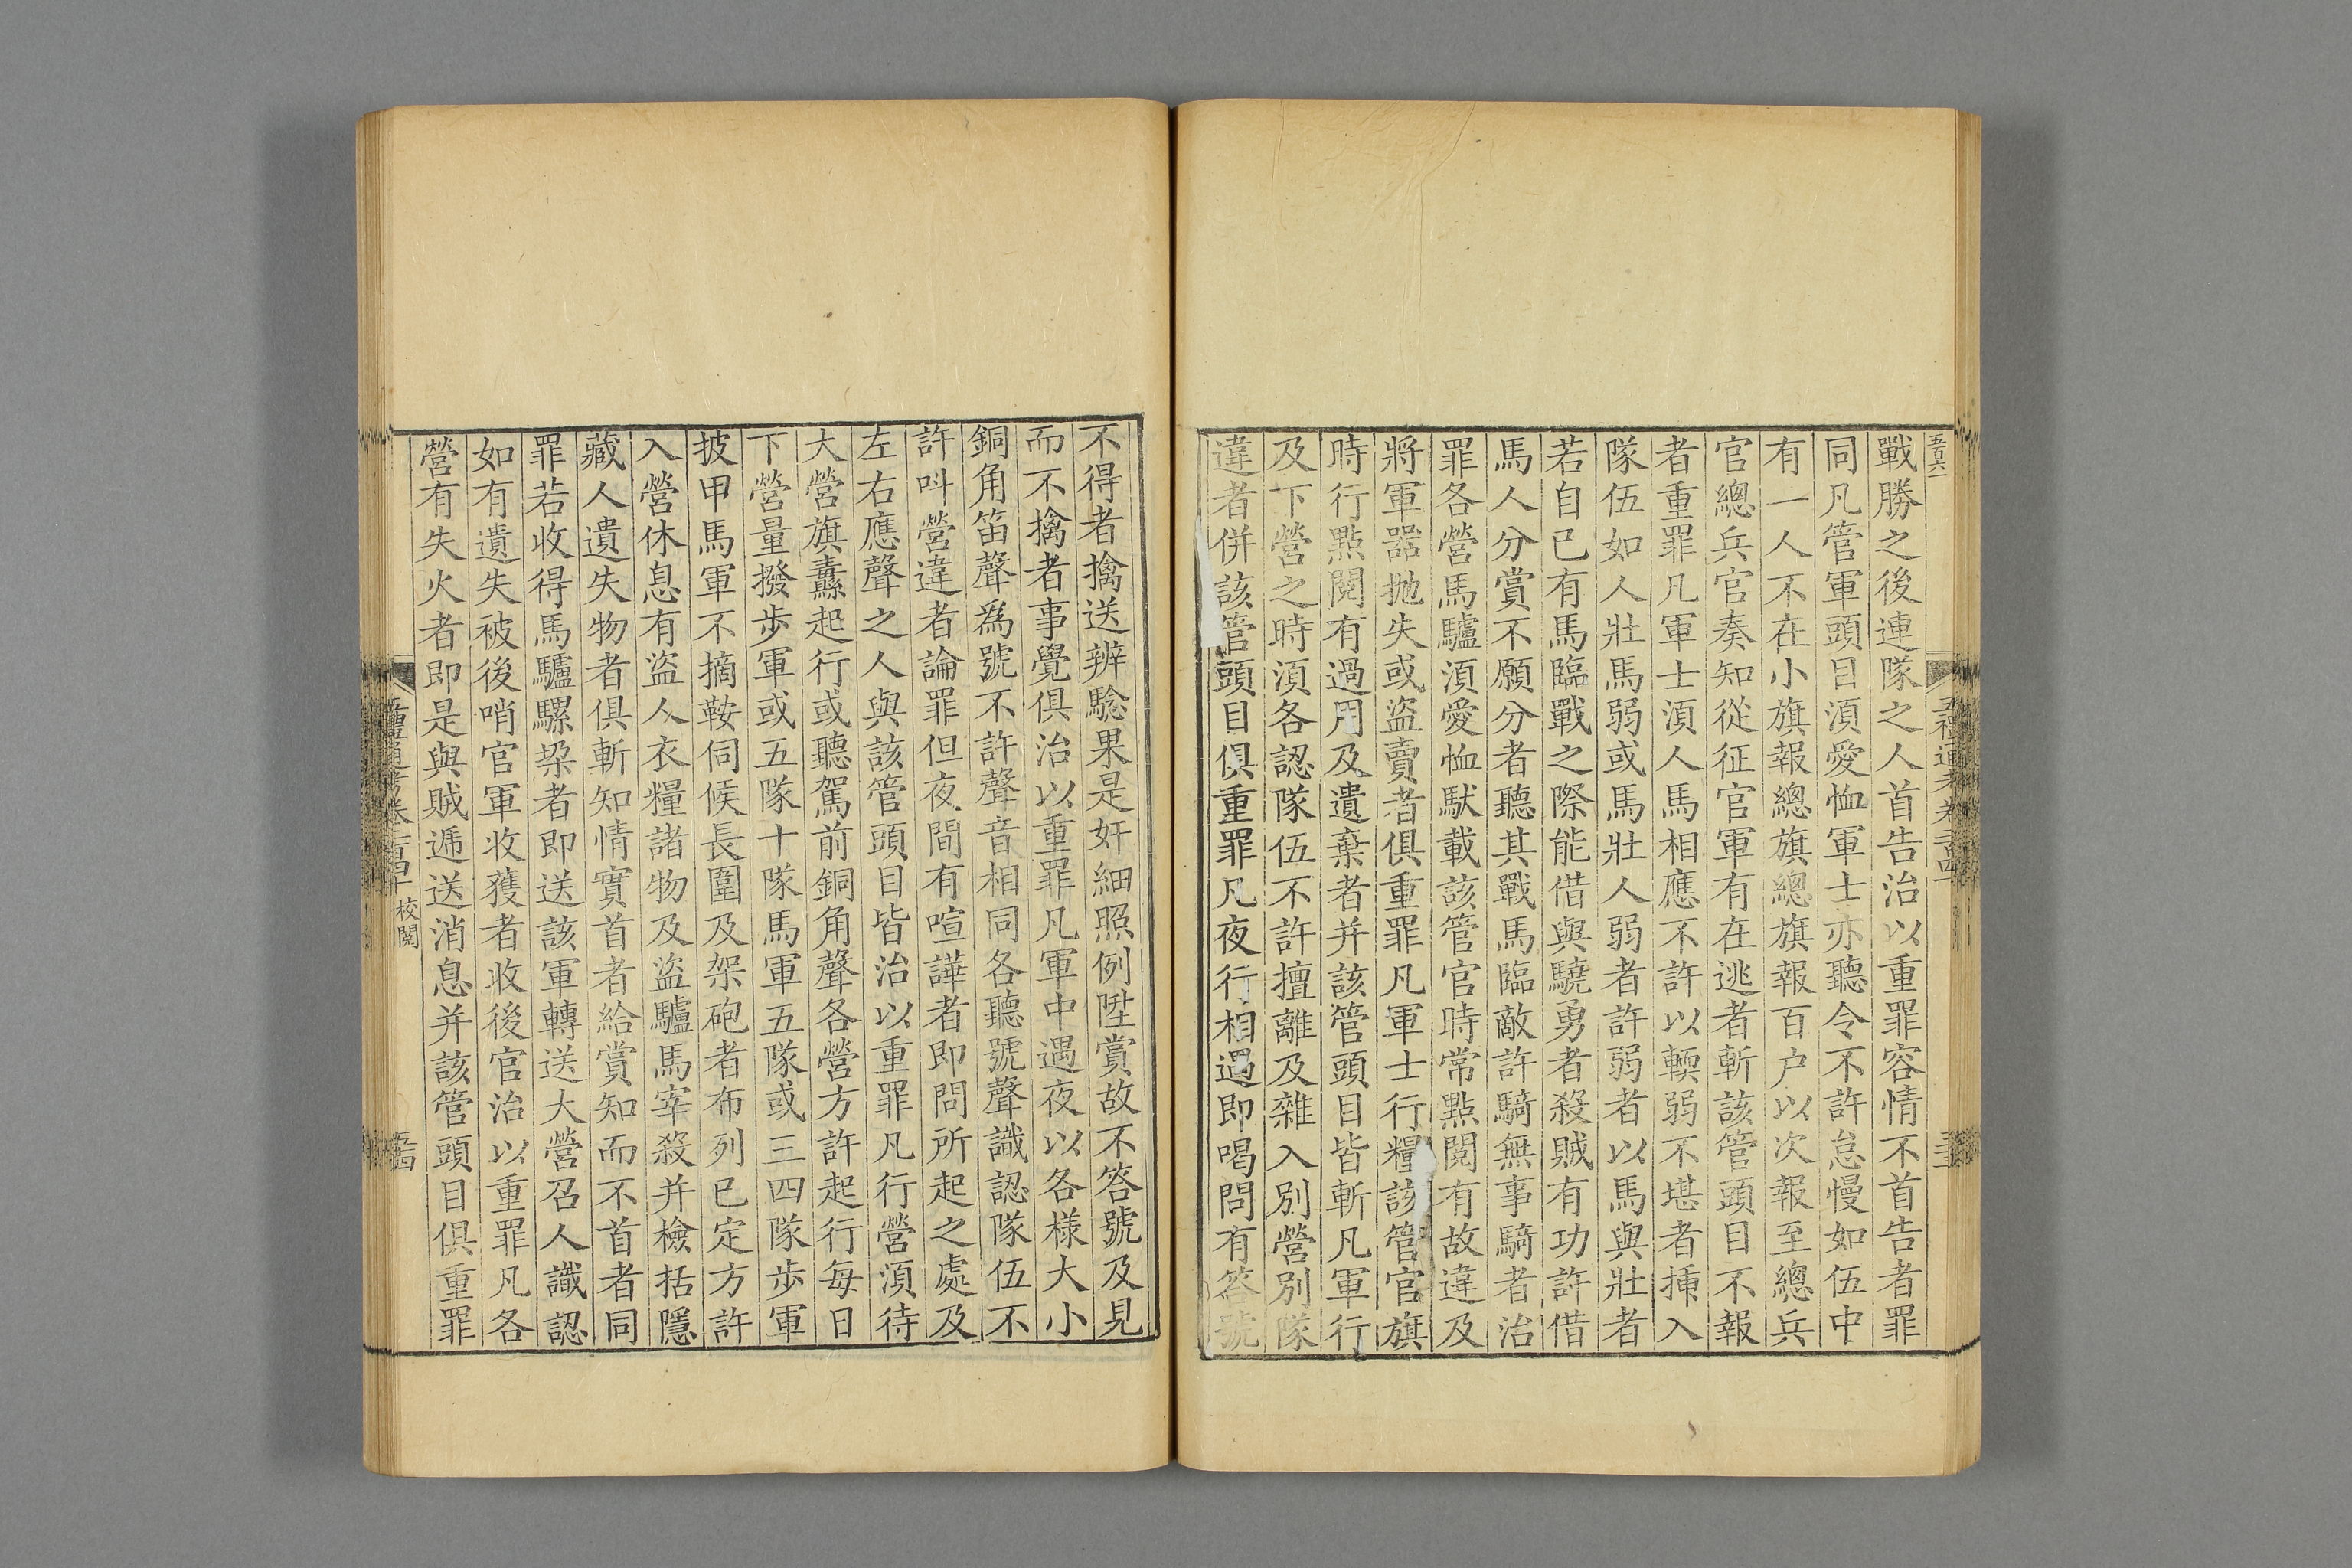 五百六一
戰勝之後連隊之人首告治以重罪容情不首告者罪
同凡管軍頭目湏愛恤軍士亦聽令不許怠慢如伍中
有一人不在小旗報總旗總旗報百户以次報至總兵
官總兵官奏知從征官軍有在逃者斬該管頭目不報
者重罪凡軍士湏人馬相應不許以輭弱不堪者揷入
隊伍如人壯馬弱或馬壯人弱者許弱者以馬與壯者
若自已有馬臨戰之際能借與驍勇者殺賊有功許借
馬人分賞不願分者聽其戰馬臨敵許騎無事騎者治
罪各營馬驢湏愛恤馱載該管官時常點閱有故違及
將軍器抛失或盜賣者俱重罪凡軍士行糧該管官旗
時行點閱有過用及遺棄者并該管頭目皆斬凡軍行
及下營之時湏各認隊伍不許擅離及雜入別營別隊
違者併該管頭目俱重罪凡夜行相遇即喝問有答號
不得者擒送辨驗果是奸細照例陞賞故不答號及見
而不擒者事覺俱治以重罪凡軍中遇夜以各樣大小
銅角笛聲爲號不許聲音相同各聽號聲識認隊伍不
許叫營違者論罪但夜間有喧譁者即問所起之處及
左右應聲之人與該管頭目皆治以重罪凡行營湏待
大營旗纛起行或聽駕前銅角聲各營方許起行每日
下營量撥歩軍或五隊十隊馬軍五隊或三四隊歩軍
披甲馬軍不摘鞍伺候長圍及架砲者布列已定方許
入營休息有盜人衣糧諸物及盜驢馬宰殺并檢括隱
藏人遺失物者俱斬知情實首者給賞知而不首者同
罪若收得馬驢騾槖者即送該軍轉送大營召人識認
如有遺失被後哨官軍收獲者收後官治以重罪凡各
營有失火者即是與賊逓送消息并該管頭目俱重罪
校閱